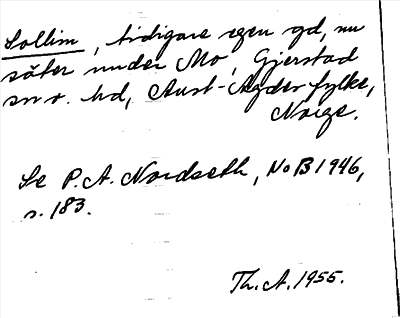 Sollim, tidigare egen gd, nu
säter under Mo, Gjerstad
sn o. hd, Aust-Agder fylke,
Norge.
Se P.A. Nordseth, NoB 1946,
s. 183.
Th. A. 1955.